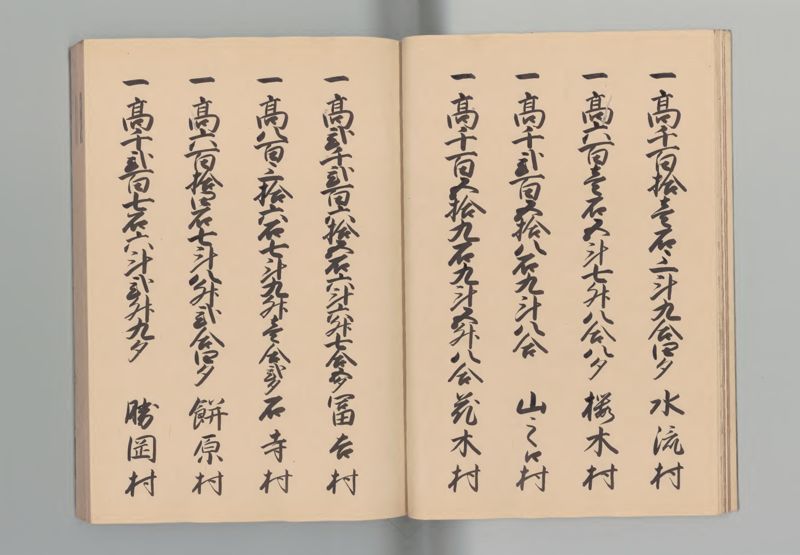 一高千百拾壱石二斗九合四夕 水流村
一高六百壱石五斗七升八合八夕 樱木村
一高千弐百五拾八石九斗八合 山之口村
一高千百五拾九石九斗五升八合 花木村
一高弐千弐百六拾五石六斗六升七合五夕 冨吉村
一高八百三拾六石七斗九升壱合弐夕 石寺村
一高六百拾四石七斗八升弐合四夕 餅原村
一高千弐百七石六斗弐升九夕 勝岡村